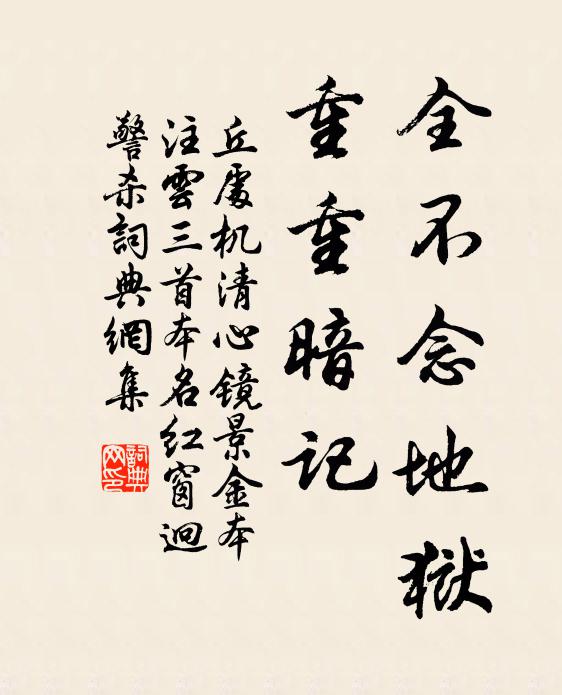 全不念地獄
重重暗記
丘處机清心鏡景金本
注雲三首本名紅窗迥
警杀詞典網集
詞典
网印